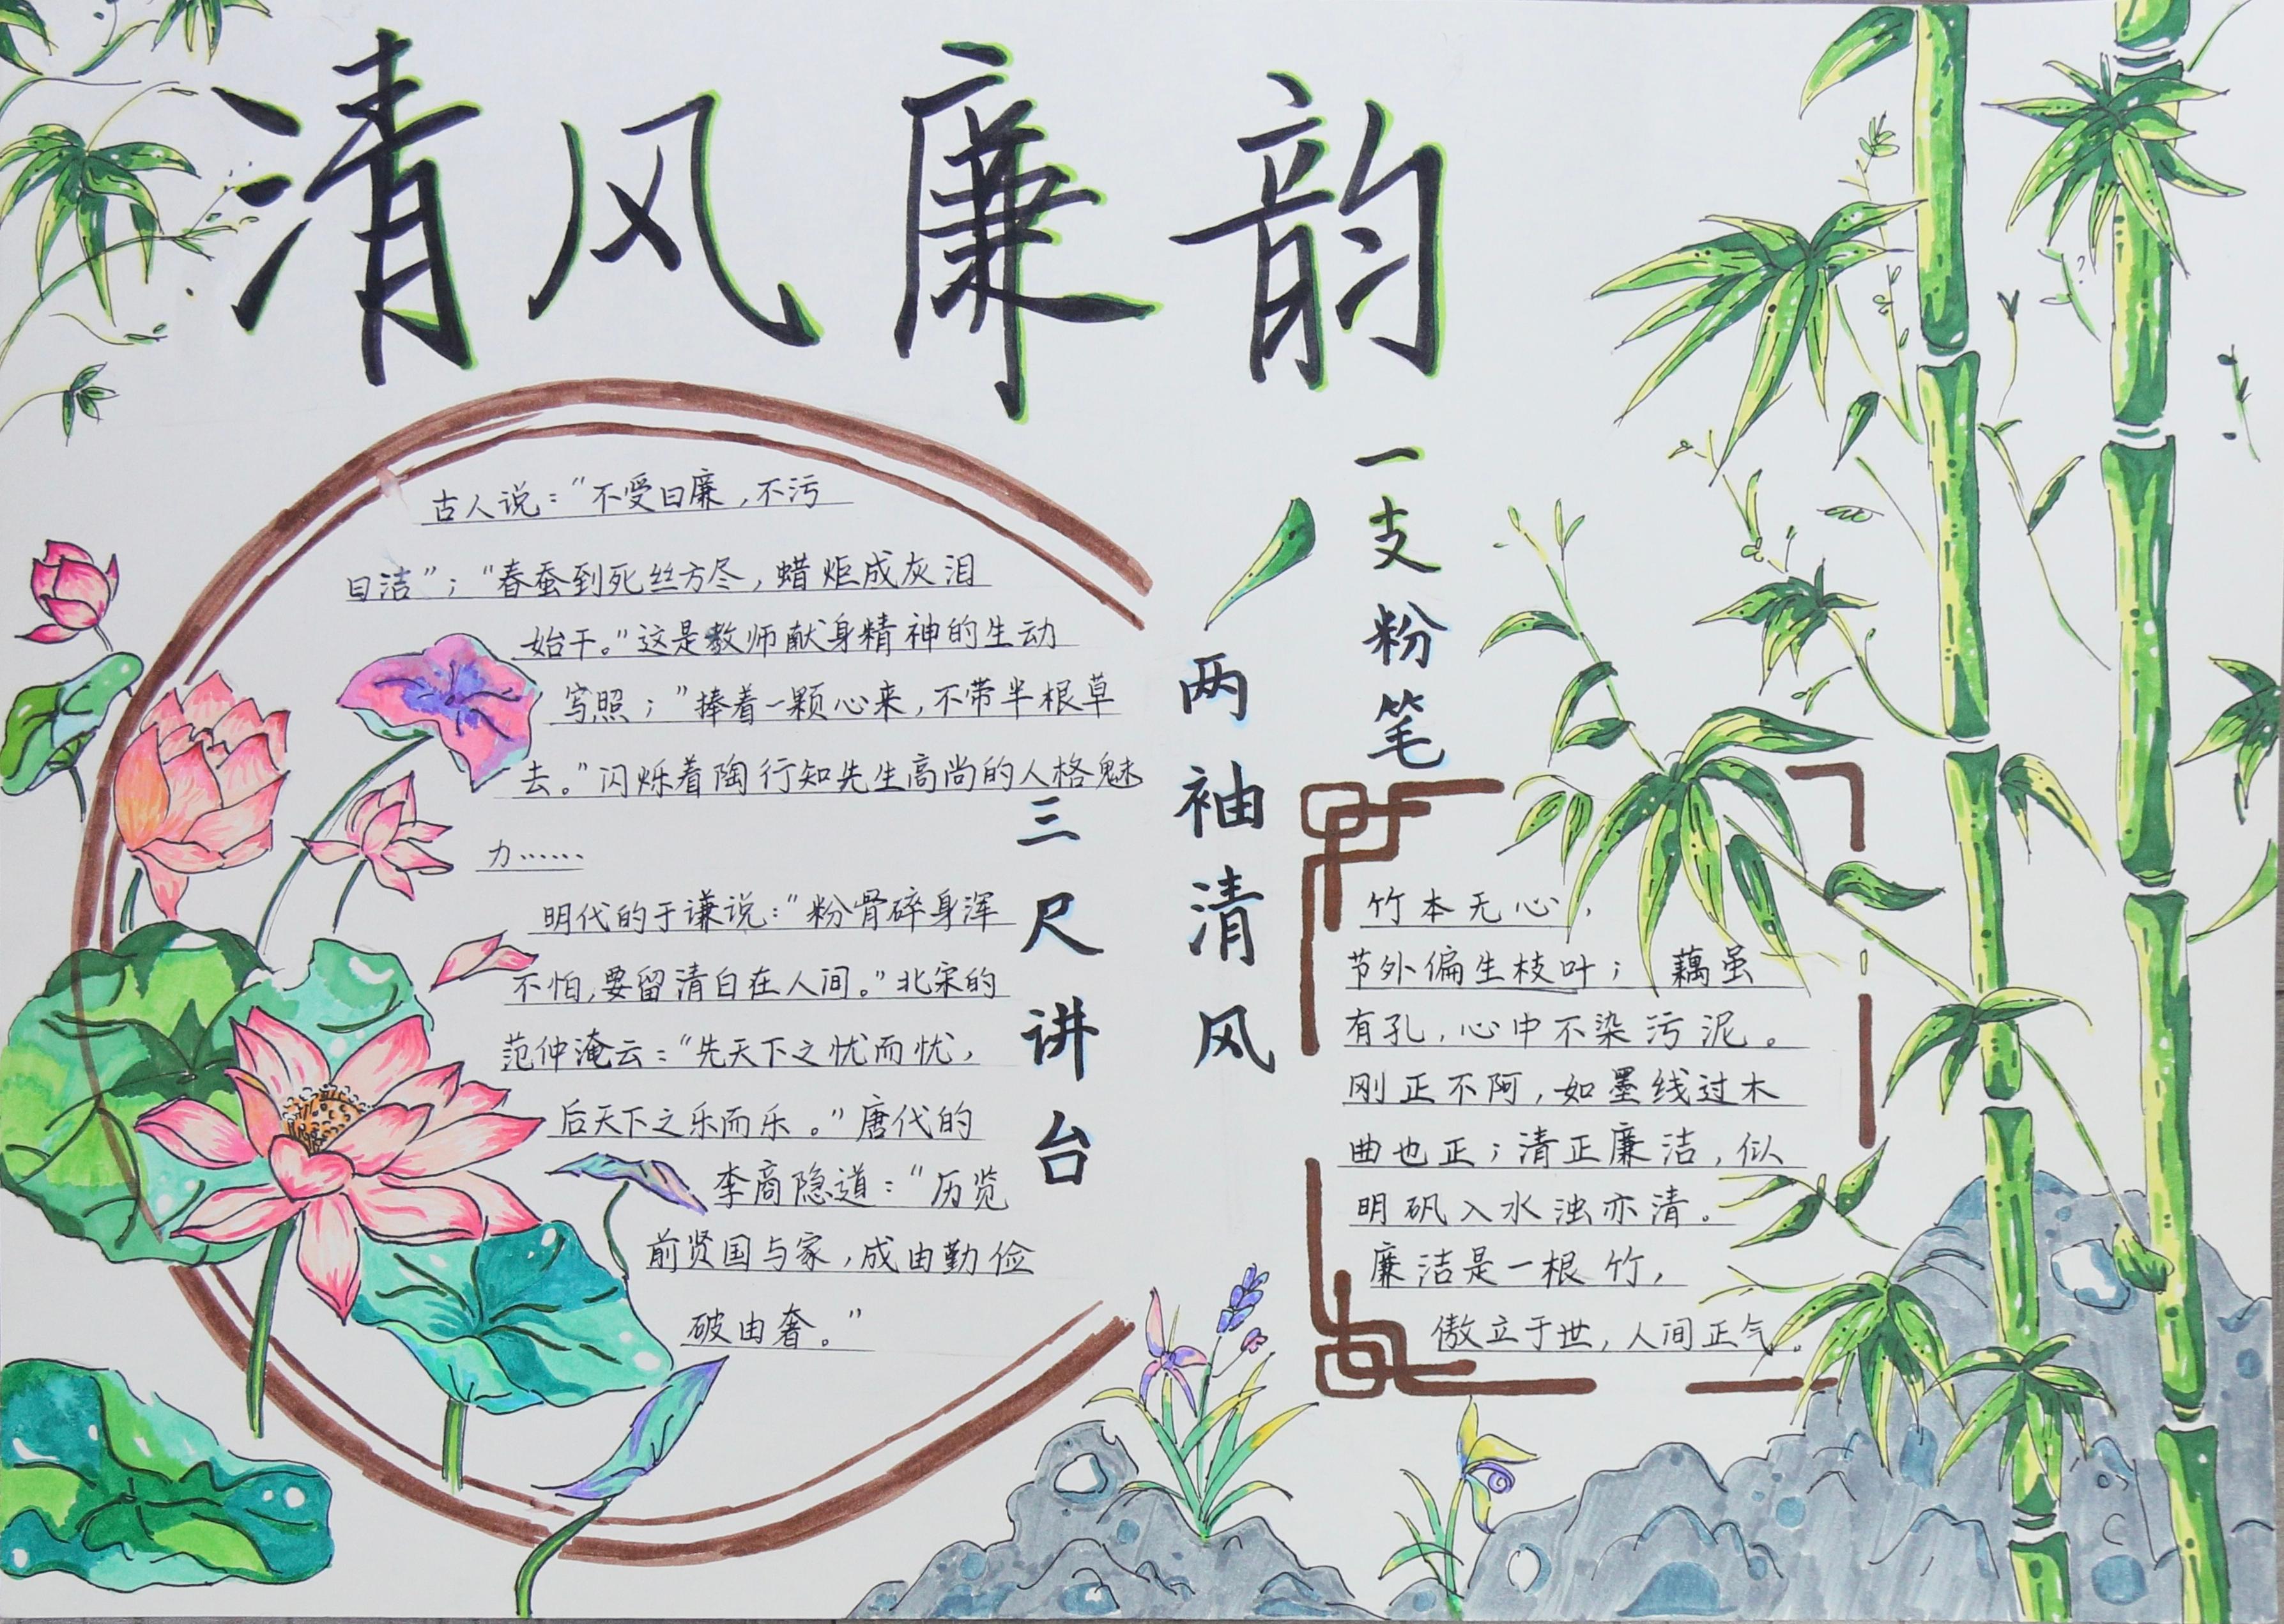 清风廉韵
古人说：“不受曰廉，不污
曰洁”；“春蚕到死丝方尽，蜡炬成灰泪
始干。”这是教师献身精神的生动
写照；”捧着一颗心来，不带半根草
去。”闪烁着陶行知先生高尚的人格魅
力……
明代的于谦说：”粉骨碎身浑
不怕，要留清白在人间。”北宋的
范仲淹云：“先天下之忧而忧，
后天下之乐而乐。”唐代的
李商隐道：“历览
前贤国与家，成由勤俭
破由奢。”
一支粉笔
两袖清风
三尺讲台
竹本无心，
节外偏生枝叶；藕虽
有孔，心中不染污泥。
刚正不阿，如墨线过木
曲也正；清正廉洁，似
明矾入水浊亦清。
廉洁是一根竹，
傲立于世，人间正气。